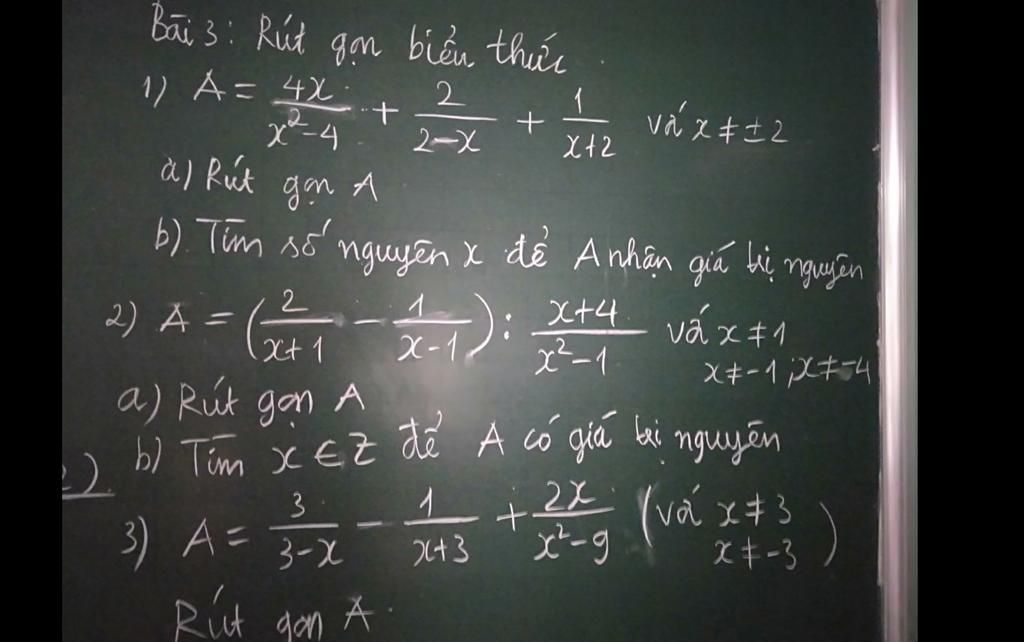 Bài 3: Rút gọn biểu thức.
1) A = 4x/(x²-4) + 2/(2-x) + 1/(x+2) với x ≠ ±2
a) Rút gọn A
b). Tìm số nguyên x để A nhận giá trị nguyên
2) A = (2/(x+1) - 1/(x-1)) : (x+4)/(x²-1) với x ≠ 1
x ≠ -1; x ≠ -4
a) Rút gọn A
b) Tìm x ∈ Z để A có giá trị nguyên
3) A = 3/(3-x) - 1/(x+3) + 2x/(x²-9) (với x ≠ 3
x ≠ -3)
Rút gọn A.